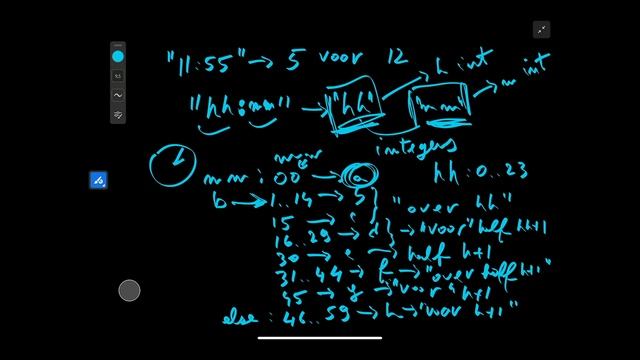 "11:55" → 5 voor 12
h int
m int
"hh:mm" → "hh" "mm"
integers
mm : 00 → a
hh : 0..23
b → 1..14 → 5 "over hh"
15 → c
16..29 → d → "voor" half hh+1
30 → e → half h+1
31..44 → f → "over half hh+1"
45 → g → "voor" h+1
else : 46..59 → h → "voor h+1"